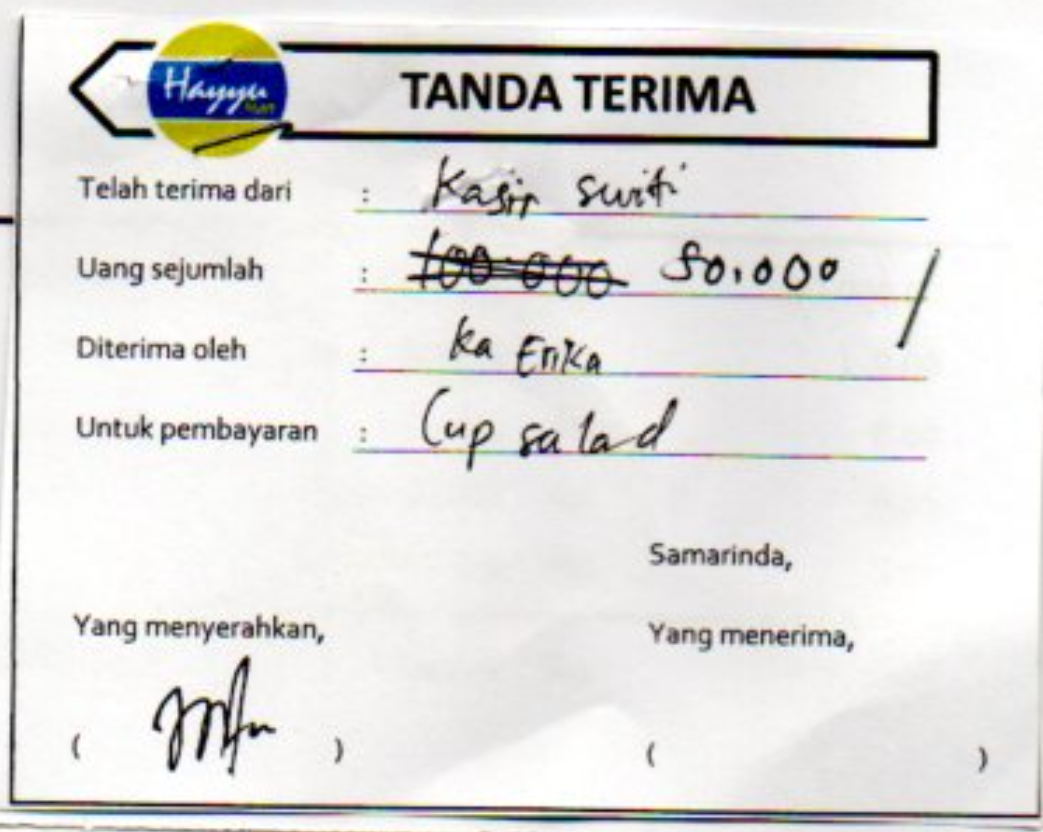 Hayyu Mart
TANDA TERIMA
Telah terima dari : Kasir Switi
Uang sejumlah : 100.000 50.000
Diterima oleh : Ka Erika
Untuk pembayaran : Cup salad
Samarinda,
Yang menyerahkan, Yang menerima,
( ) ( )